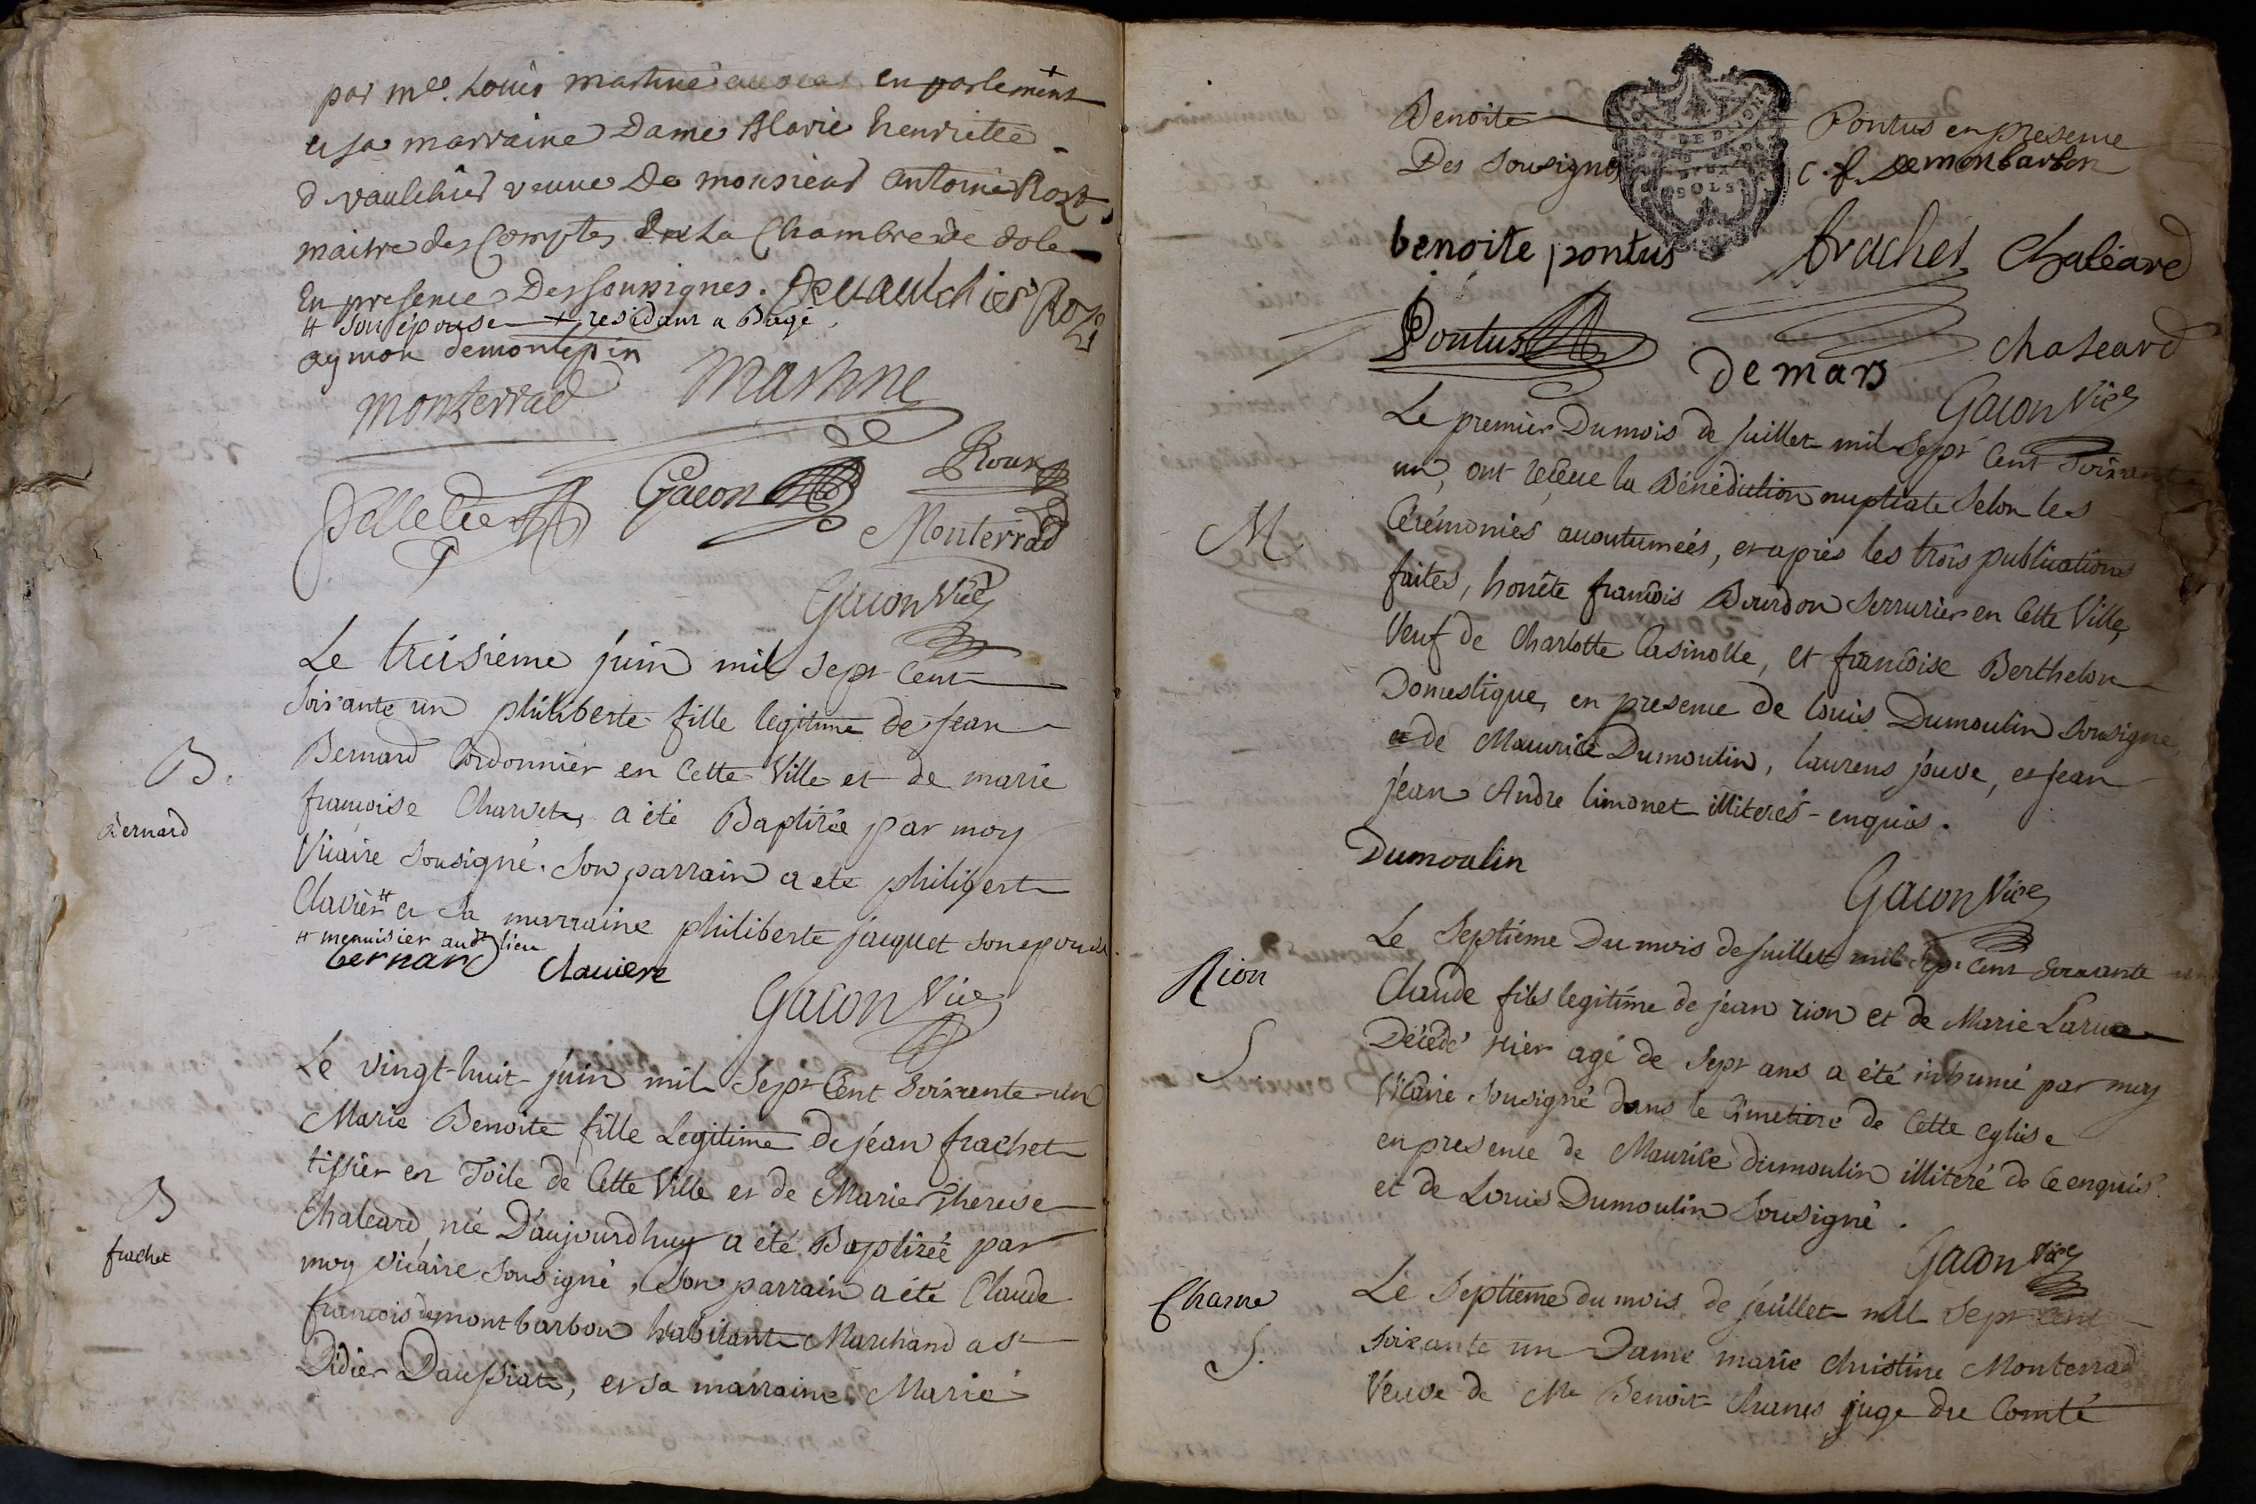 par me. Louis martine avocat en parlement +
et sa marraine Dame Marie henriette
d vaulchier veuve De monsieur antoine Roz
maitre des Comptes En La Chambre de dole
En presence Des soussignes. Devaulchier Roz
# son épouse + residant a Bagé
aymon demontepin
monterrad Martine
Pelletier Gacon Roux
Monterrad
Gacon Vice
Le treisiéme juin mil sept Cent
soixante un philiberte fille legitime de jean
Bernard Cordonnier en Cette Ville et de marie
françoise Charvet, a été Baptisée par moy
Vicaire sousigné. Son parrain a ete philibert
Clavier # et sa marraine philiberte jacquet son epouse.
# menuisier audt lieu
bernard Claviere
Gacon Vice
B.
Bernard
Le vingt-huit juin mil sept Cent soixante un
Marie Benoite fille Legitime de jean frachet
tissier en Toile de Cette Ville et de Marie Therese
Chaleard, née D'aujourdhuy a été Baptizée par
moy vicaire sousigné, Son parrain a été Claude
françois demontbarbon habitant Marchand a st
Didier Daussiat, et sa marraine Marie
B
frachet
Benoite Pontus en presence
Des sousignés C. f. Demonbarbon
DE DIJON
DEUX
SOLS
benoite pontus frachet Chaleard
Pontus demars chaleard
Gacon Vice
Le premier Du mois de juillet mil sept Cent soixante
un, ont reçeue la Bénédiction nuptiale selon les
Cérémonies accoutumées, et apres les trois publications
faites, honête francois Bourdon serrurier en Cette Ville,
Veuf de Charlotte Casinolle, et francoise Berthelon
Domestique, en presence de Louis Dumoulin sousigné,
et de Maurice Dumoulin, laurens jouve, et jean
jean Andre limonet illiterés - enquis.
M
Dumoulin
Gacon Vice
Le Septieme Du mois de juillet mil sept Cent soixante un
Claude fils legitime de jean rion et de Marie Larue
Décédé hier agé de sept ans a été inhumé par moy
Vicaire sousigné dans le Cimetiere de Cette eglise
en presence de Maurice dumoulin illiteré de ce enquis
et de Louis Dumoulin sousigné.
Rion
S
Gacon Vice
Le Septieme du mois de jeüillet mil sept Cent
soixante un Dame marie christine Monterrad
Veuve de Me Benoit Charne juge du Comté
Charne
S.